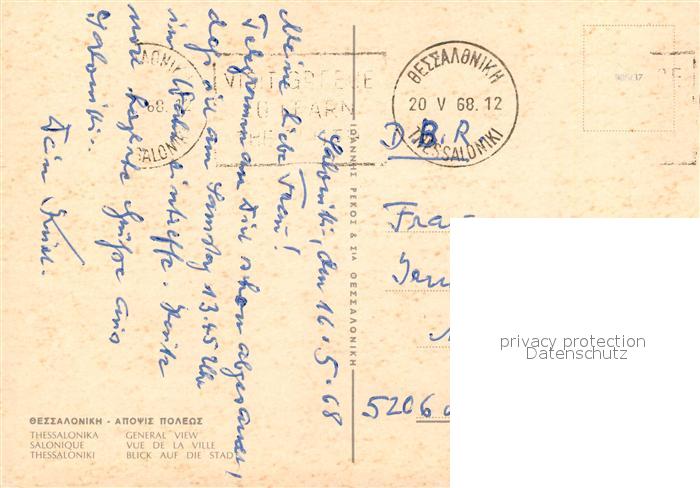 Saloniki, den 16.5.68
Meine liebe Frau!
Telegramm an Dich schon abgesandt,
daß ich am Samstag 13.45 Uhr
in eintreffe. Heute
noch Grüße aus
Saloniki.
Dein
ΘΕΣΣΑΛΟΝΙΚΗ - ΑΠΟΨΙΣ ΠΟΛΕΩΣ
THESSALONIKA GENERAL VIEW
SALONIQUE VUE DE LA VILLE
THESSALONIKI BLICK AUF DIE STADT
ΙΩΑΝΝΗΣ ΡΕΚΟΣ & ΣΙΑ ΘΕΣΣΑΛΟΝΙΚΗ
VISIT GREECE
TO LEARN
ΘΕΣΣΑΛΟΝΙΚΗ
20 V 68.12
THESSALONIKI
68.12
D.B.R.
Frau
5206
privacy protection
Datenschutz